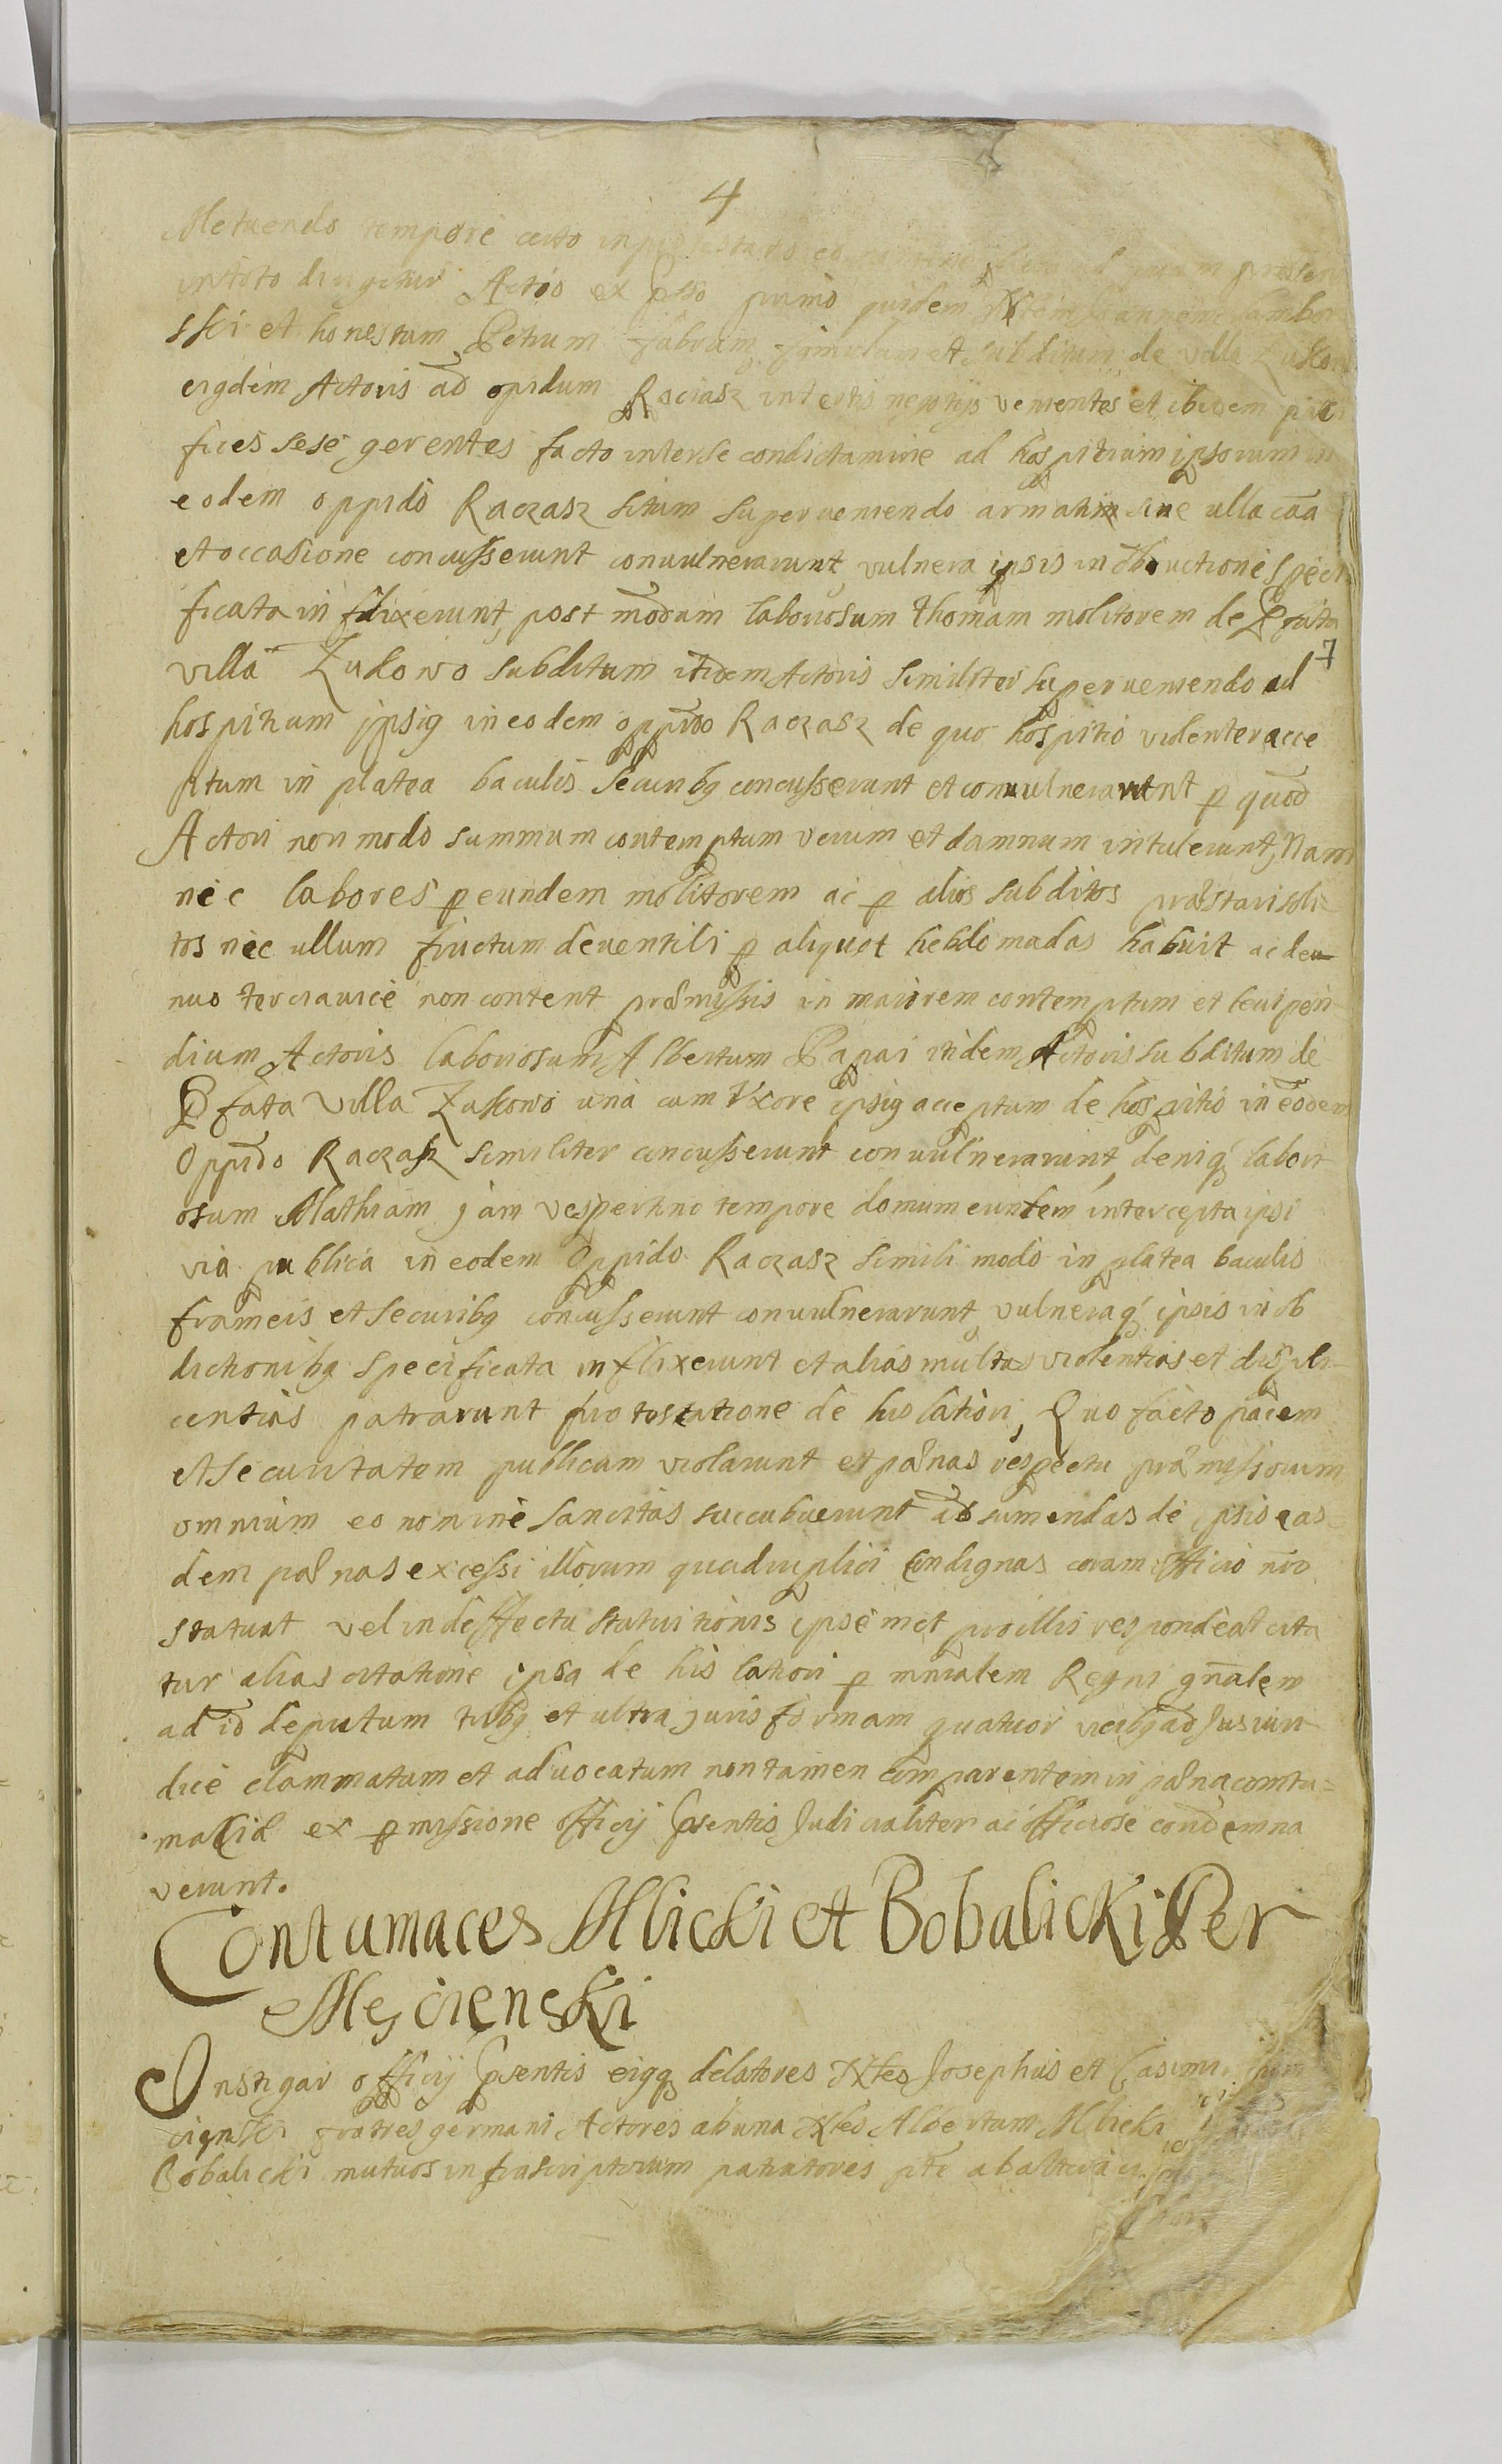 4
Metuendo tempore certo
in toto dirigitur Actio ex pmo quidem
ski et honestum Petrum fabrum famulum et subditum de villa Zukow
eigdem Actoris ad opidum Raciasz in certis negotijs venientes et ibidem paci
fices sese gerentes facto inter se condictamine ad hospitium ipsorum in
eodem oppido Raczasz situm superueniendo armatim sine ulla caa
et occasione concusserunt conuulnerarunt vulnera ipsis in obductione speci
ficata in flixerunt, post modum laboriosum thomam molitorem de Pfata
villa Zukowo subditum itidem Actoris similiter superueniendo ad
7
hospitium ipsig in eodem oppido Raczasz de quo hospitio violenter acce
ptum in platea baculis Securibg concusserunt et conuulnerarunt p quod
Actori non modo summum contemptum verum et damnum intulerunt, Nam
nec labores p eundem molitorem ac p alios subditos præstari soli
tos nec ullum fructum deuentili p aliquot hebdomadas habuit ac de
nuo terciauice non content præmissis in maiorem contemptum et leuipen
dium Actoris laboriosum Albertum Papai itidem Actoris subditum de
Pfata villa Zukowo una cum Vxore ipsig acceptum de hospitio in eodem
Oppido Raczasz similiter concusserunt conuulnerarunt, deniq labori
osum Mathiam jam vespertino tempore domum euntem intercepta ipsi
via publica in eodem Oppido Raczasz simili modo in platea baculis
frameis et securibg concusserunt conuulnerarunt vulneraq ipsis in ob
dictionibg specificata inflixerunt et alias multas violentias et displi
centias patrarunt protestatione de his latiori, Quo facto pacem
et securitatem publicam violarunt et pænas respectu præmissorum
omnium eo nomine sancitas succubuerunt ad sumendas de ipsis eas
dem pænas excessi illorum quadruplici condignas coram officio nro
statuat vel in deffectu statuitionis ipsemet pro illis respondeat cita
tur alias citatione ipsa de his latiori p mnralem Regni gnalem
ad id deputum tribg et ultra juris formam quatuor vicibg ad Jus iuri
dice clammatum et aduocatum non tamen comparentem in pæna contu=
macia ex pmissione officij Psentis Judicialiter ac officiose condemna
verunt.
Contumaces Mlicki et Bobalicki Per
Mescienski
Instigar officij Psentis eigq delatores Xtes Josephus et Casimi
fratres germani Actores ab una Xtes Albertum Mlicki
Bobalicki mutuos infrascriptorum patratores pte ab altera